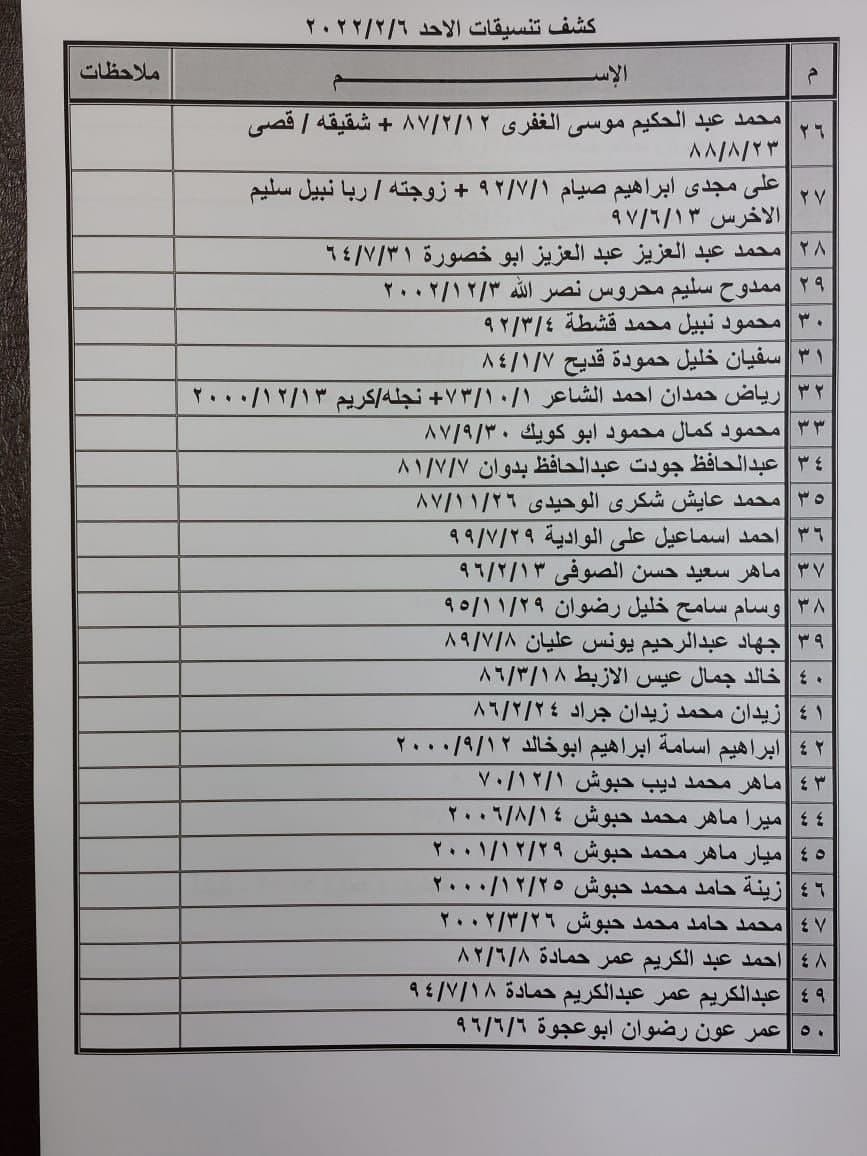 كشف تنسيقات الاحد ٢٠٢٢/٢/٦
م الإســـــــم ملاحظات
٢٦ محمد عبد الحكيم موسى الغفرى ٨٧/٢/١٢ + شقيقه / قصى
٨٨/٨/٢٣
٢٧ على مجدى ابراهيم صيام ٩٢/٧/١ + زوجته / ربا نبيل سليم
الاخرس ٩٧/٦/١٣
٢٨ محمد عبد العزيز عبد العزيز ابو خصورة ٦٤/٧/٣١
٢٩ ممدوح سليم محروس نصر الله ٢٠٠٢/١٢/٣
٣٠ محمود نبيل محمد قشطة ٩٢/٣/٤
٣١ سفيان خليل حمودة قديح ٨٤/١/٧
٣٢ رياض حمدان احمد الشاعر ٧٣/١٠/١+ نجله/كريم ٢٠٠٠/١٢/١٣
٣٣ محمود كمال محمود ابو كويك ٨٧/٩/٣٠
٣٤ عبدالحافظ جودت عبدالحافظ بدوان ٨١/٧/٧
٣٥ محمد عايش شكرى الوحيدى ٨٧/١١/٢٦
٣٦ احمد اسماعيل على الوادية ٩٩/٧/٢٩
٣٧ ماهر سعيد حسن الصوفى ٩٦/٢/١٣
٣٨ وسام سامح خليل رضوان ٩٥/١١/٢٩
٣٩ جهاد عبدالرحيم يونس عليان ٨٩/٧/٨
٤٠ خالد جمال عيس الازبط ٨٦/٣/١٨
٤١ زيدان محمد زيدان جراد ٨٦/٢/٢٤
٤٢ ابراهيم اسامة ابراهيم ابوخالد ٢٠٠٠/٩/١٢
٤٣ ماهر محمد ديب حبوش ٧٠/١٢/١
٤٤ ميرا ماهر محمد حبوش ٢٠٠٦/٨/١٤
٤٥ ميار ماهر محمد حبوش ٢٠٠١/١٢/٢٩
٤٦ زينة حامد محمد حبوش ٢٠٠٠/١٢/٢٥
٤٧ محمد حامد محمد حبوش ٢٠٠٢/٣/٢٦
٤٨ احمد عبد الكريم عمر حمادة ٨٢/٦/٨
٤٩ عبدالكريم عمر عبدالكريم حمادة ٩٤/٧/١٨
٥٠ عمر عون رضوان ابوعجوة ٩٦/٦/٦